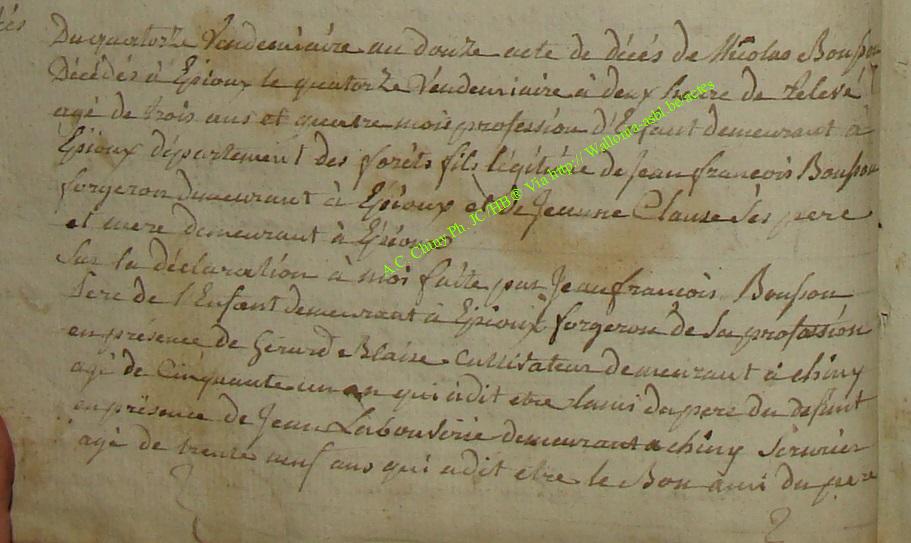 cés
Du quatorze Vendemiaire an douze acte de décés de Nicolas Bouson
Décédés à Epioux le quatorze Vendemiaire à deux heure de relevé
agé de trois ans et quatre mois profession d'Enfant demeurant à
Epioux département des forêts fils légitime de Jean françois Bouson
forgeron dmeurant à Epioux et de Jeanne Clause Ses pere
et mere demeurant à Epioux
Sur la déclaration à moi faite par Jean françois Bouson
Pere de l'Enfant demeurant à Epioux forgeron de Sa profession
en présence de Gerard Blaise Cultivateur demeurant à Chiny
agé de Cinquante un an qui a dit etre lami du pere du defunt
en présence de Jean demeurant a chiny Serurier
agé de trente neuf ans qui a dit etre le Bon ami du pere
A.C. Chiny Ph. JC/HB® Via http:// Wallonia-asbl.be/actes